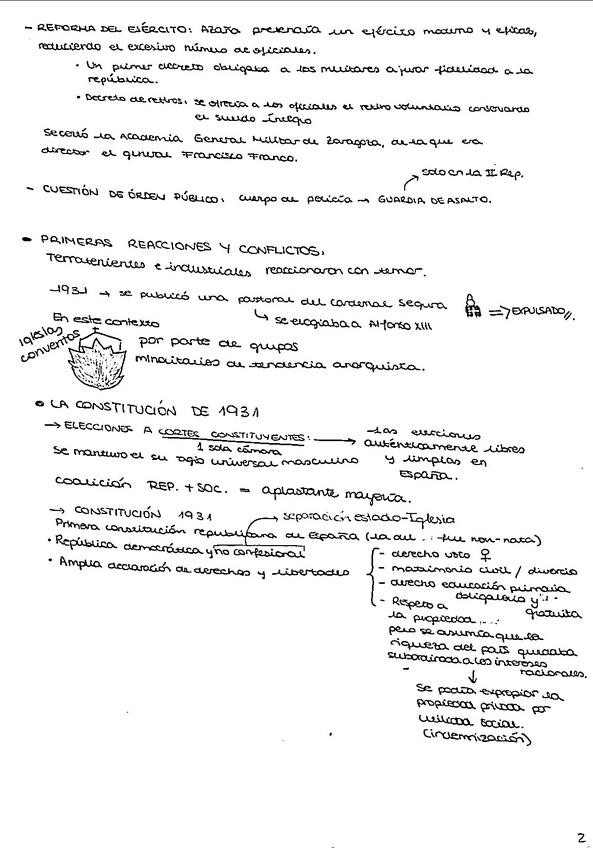 - REFORMA DEL EJÉRCITO: Azaña pretendía un ejército moderno y eficaz,
reduciendo el excesivo número de oficiales.
• Un primer decreto obligaba a los militares a jurar fidelidad a la
república.
• Decreto de retiros: se ofrecía a los oficiales el retiro voluntario conservando
el sueldo íntegro
Se cerró la Academia General Militar de Zaragoza, de la que era
director el general Francisco Franco.
solo en la II Rep.
- CUESTIÓN DE ÓRDEN PÚBLICO: cuerpo de policía → GUARDIA DE ASALTO.
• PRIMERAS REACCIONES Y CONFLICTOS:
Terratenientes e industriales reaccionaron con temor.
1931 → se publicó una pastoral del cardenal Segura => EXPULSADO//.
↳ se elogiaba a Alfonso XIII
En este contexto
Iglesias
conventos
por parte de grupos
minoritarios de tendencia anarquista.
• LA CONSTITUCIÓN DE 1931
→ ELECCIONES A CORTES CONSTITUYENTES: → - Las elecciones
1 sola cámara
auténticamente libres
Se mantuvo el su agio universal masculino
y limpias en
España.
coalición REP. + SOC. = aplastante mayoría.
→ CONSTITUCIÓN 1931 → separación Estado-Iglesia
Primera constitución republicana de España (la del fue non-nata)
• República democrática y no confesional
• Amplia declaración de derechos y libertades
- derecho voto ♀
- matrimonio civil / divorcio
- derecho educación primaria
obligatoria y
gratuita
- Respeto a
la propiedad
pero se asumía que la
riqueza del país quedaba
subordinada a los intereses
nacionales.
↓
Se podía expropiar la
propiedad privada por
utilidad social.
(indemnización)
2